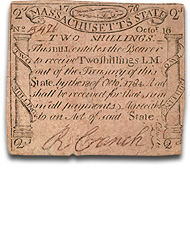 2/ 17 78 2/
MASSACHUSETTS STATE
No Octor. 16
TWO SHILLINGS.
This Bill entitles the Bearer
to receive Two shillings L.M
out of the Treasury of this
State by the 10 of Octo. 1784. And
shall be received for that sum
in all payments, Agreeable
to an Act of said State
R Cranch